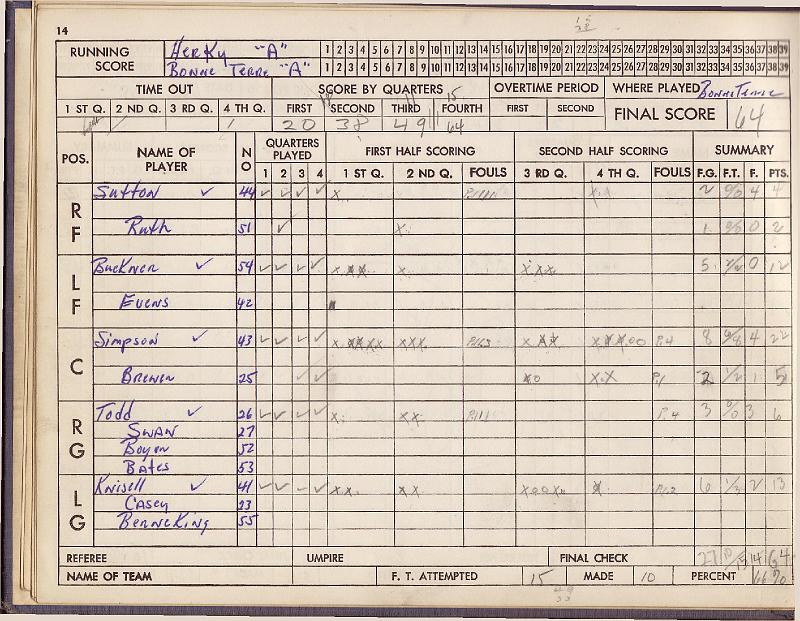 14
RUNNING SCORE HERKY "A" 1 2 3 4 5 6 7 8 9 10 11 12 13 14 15 16 17 18 19 20 21 22 23 24 25 26 27 28 29 30 31 32 33 34 35 36 37 38 39
BONNE TERRE "A" 1 2 3 4 5 6 7 8 9 10 11 12 13 14 15 16 17 18 19 20 21 22 23 24 25 26 27 28 29 30 31 32 33 34 35 36 37 38 39
TIME OUT SCORE BY QUARTERS OVERTIME PERIOD WHERE PLAYED Bonne Terre
1 ST Q. 2 ND Q. 3 RD Q. 4 TH Q. FIRST SECOND THIRD FOURTH FIRST SECOND FINAL SCORE 64
20 38 49 64
POS. NAME OF PLAYER NO QUARTERS PLAYED FIRST HALF SCORING SECOND HALF SCORING SUMMARY
1 2 3 4 1 ST Q. 2 ND Q. FOULS 3 RD Q. 4 TH Q. FOULS F.G. F.T. F. PTS.
RF Sutton 44 4 4
Ruth 51 0 2
LF Buckner 54 5 0 12
Evens 42
C Simpson 43 8 6/8 4 22
Brewen 25 2 1/2 1 5
RG Todd 26 3 0/0 3 6
SWAN 27
Boyer 52
Bates 53
LG Knisell 41 6 1/3 2 13
Casey 23
BERNEKING 55
REFEREE UMPIRE FINAL CHECK 27 10/15 14 64
NAME OF TEAM F. T. ATTEMPTED 15 MADE 10 PERCENT 66%